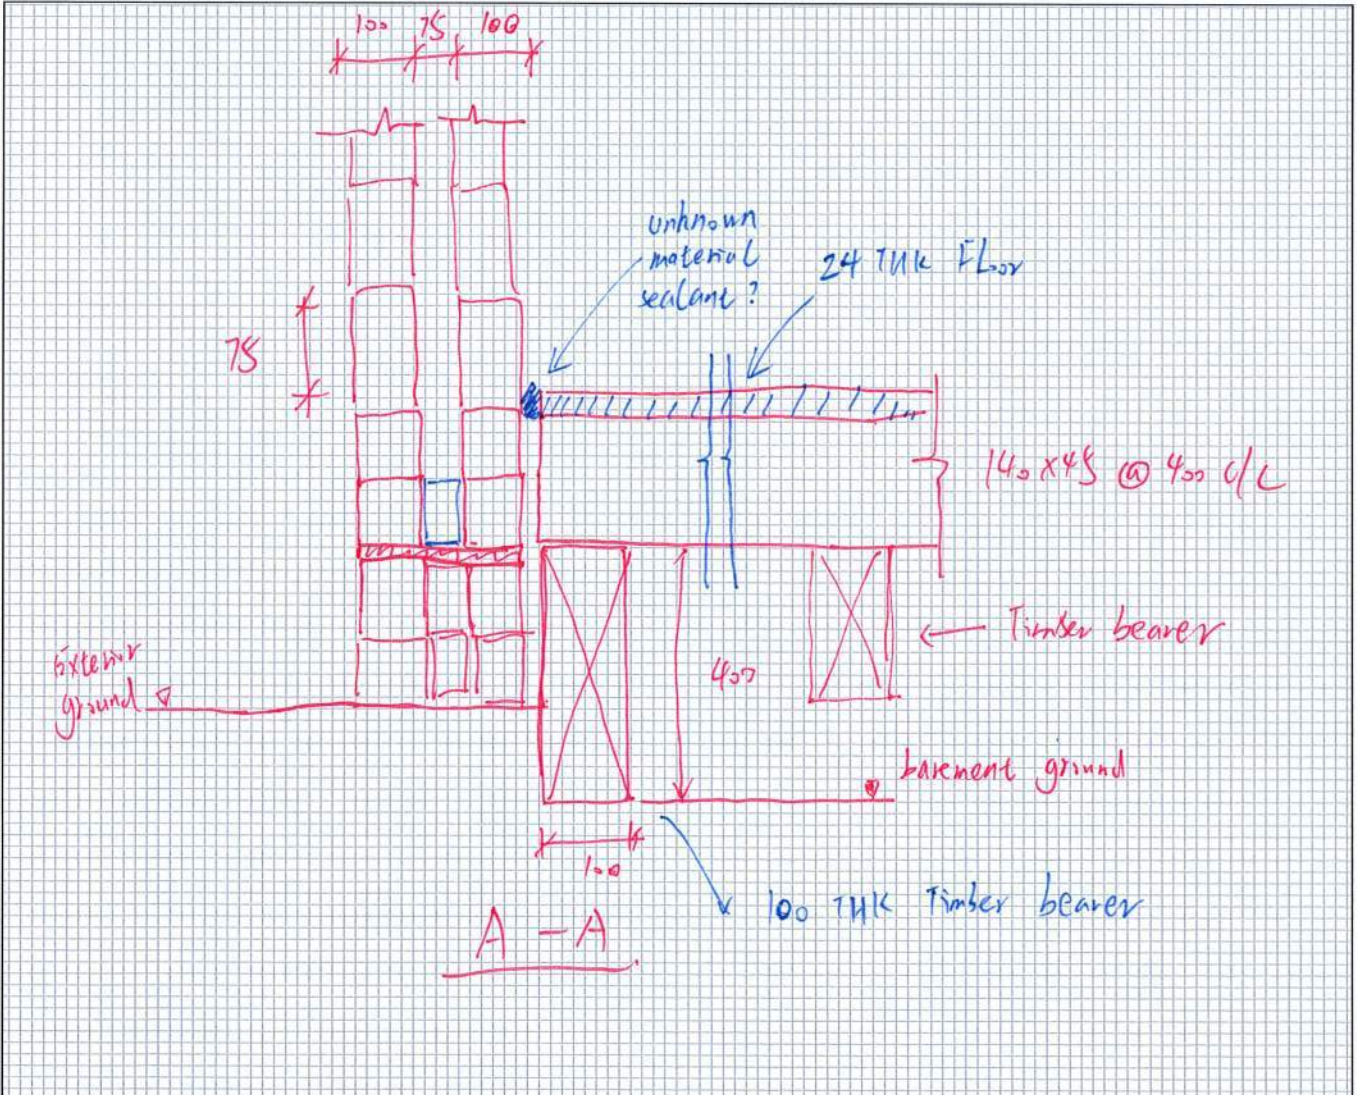 100 75 100
unknown
material
sealant?
24 THK Floor
75
140x45 @ 400 c/c
Timber bearer
Exterior
ground
400
basement ground
100
100 THK Timber bearer
A - A